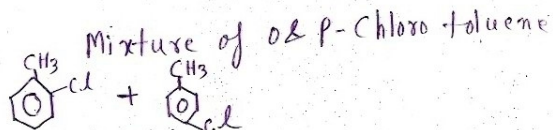 Mixture of o & p-Chloro toluene
CH3 CH3
Cl + Cl